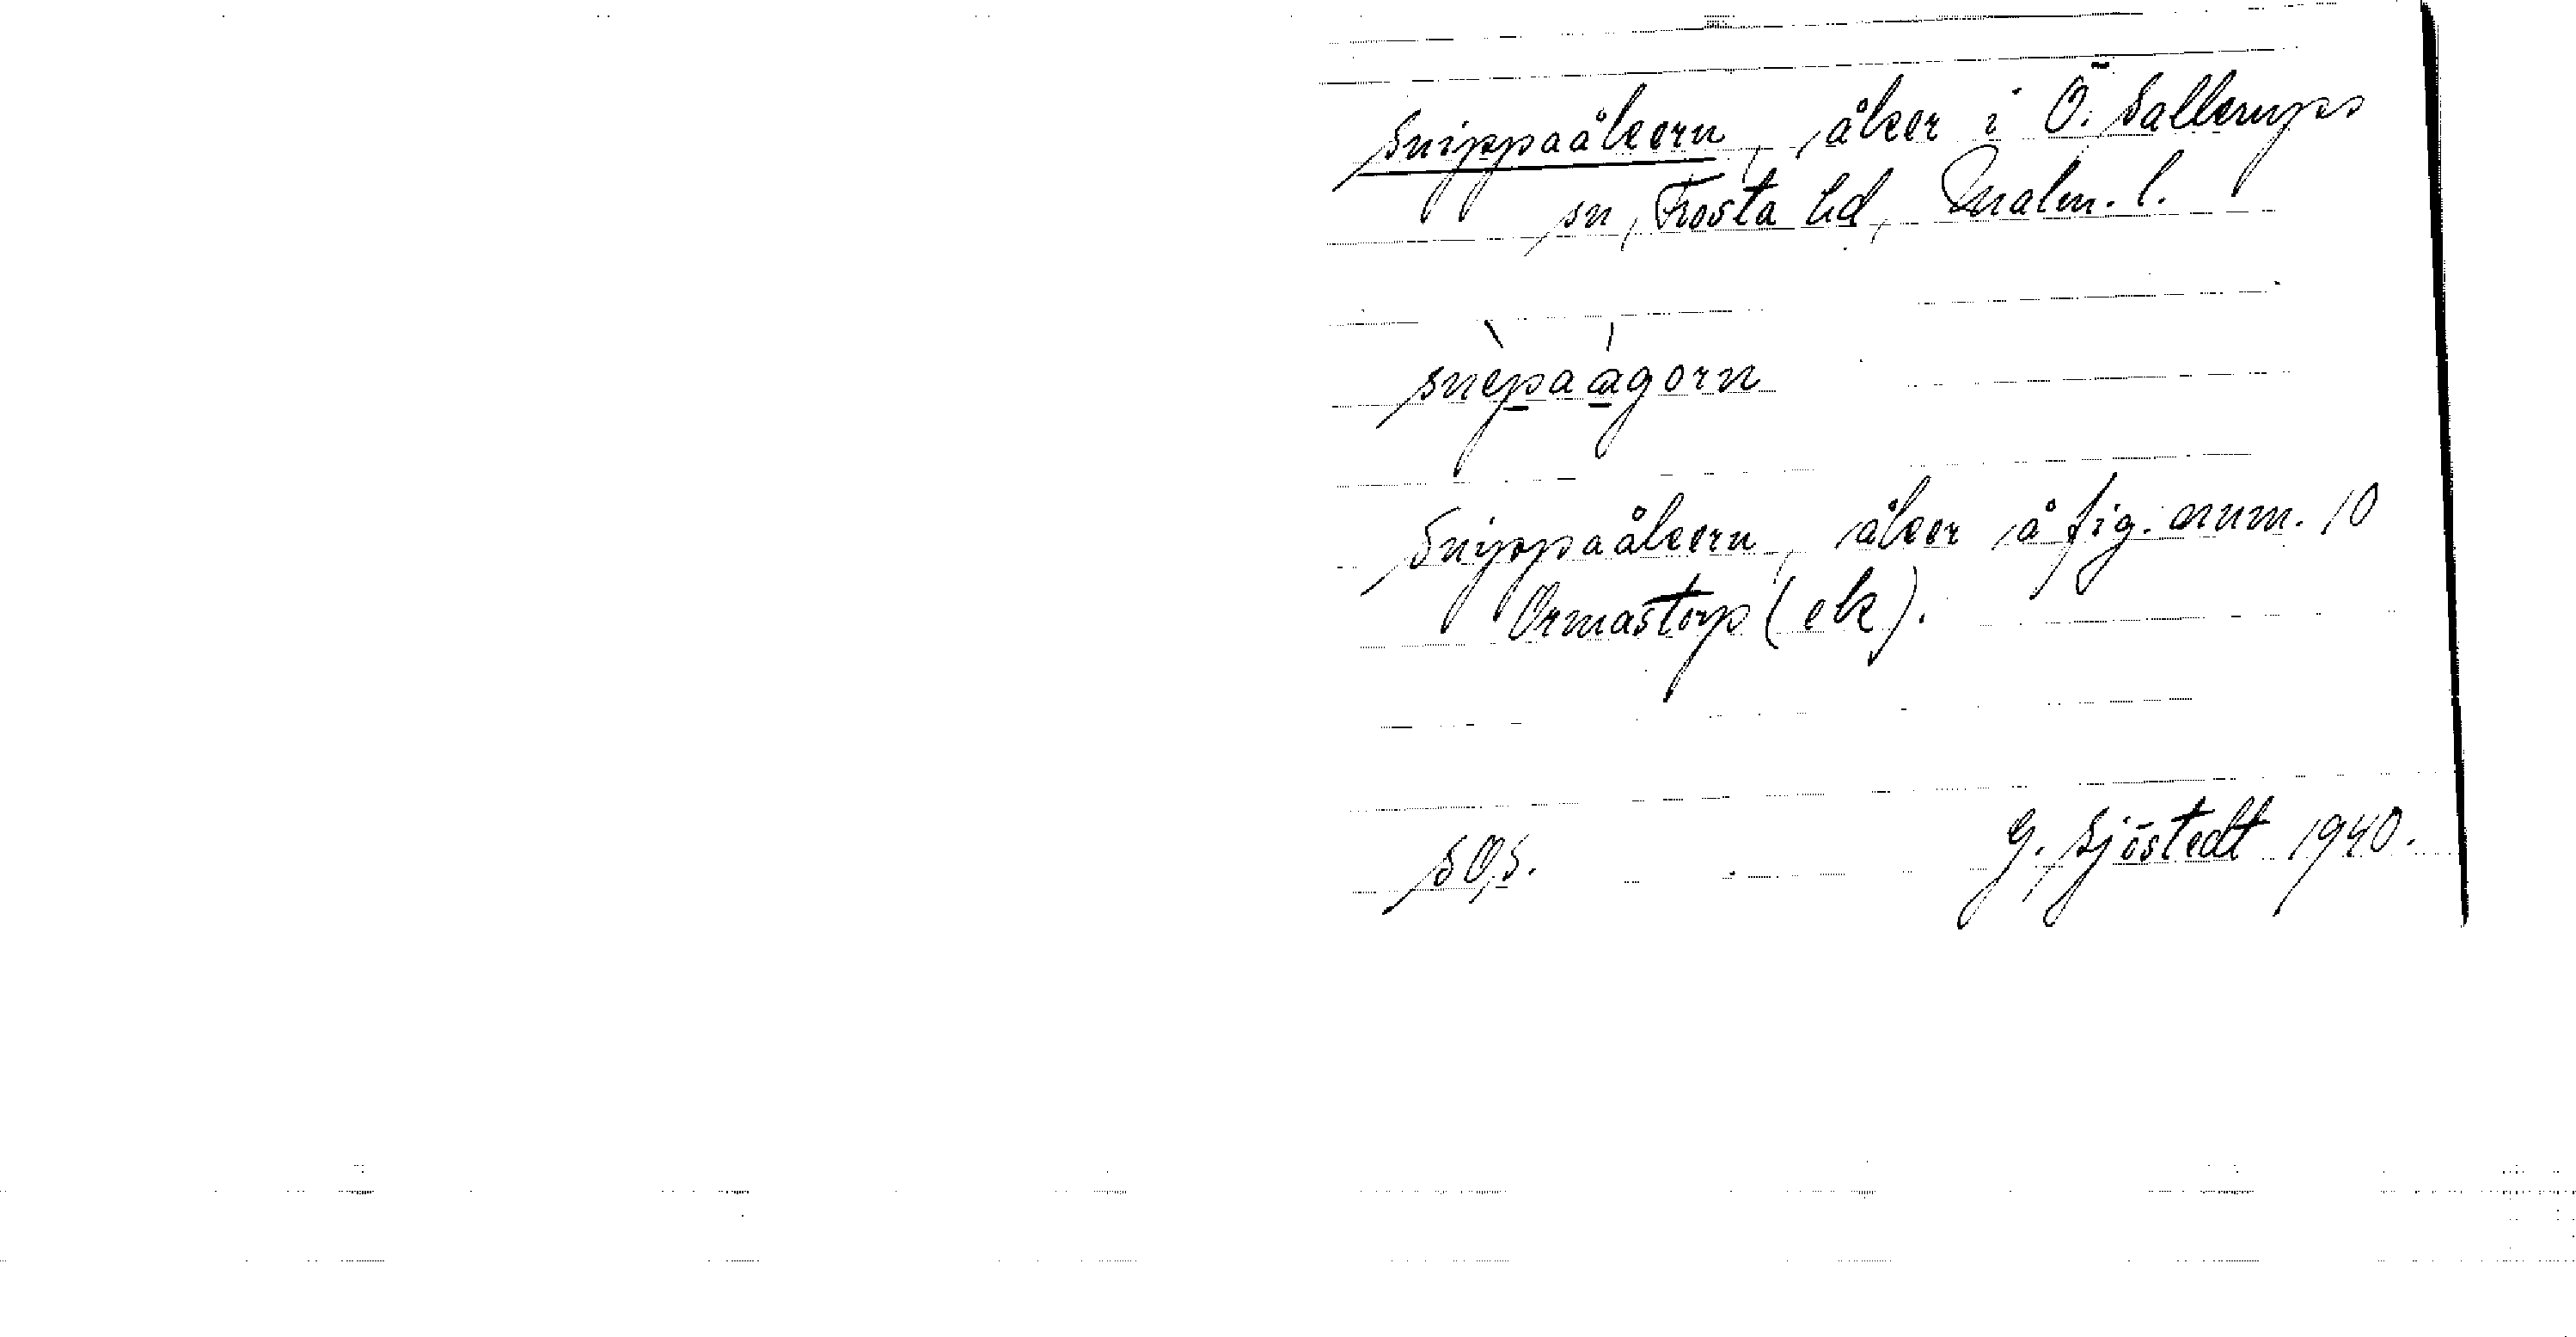 Snippaåkern, åker i Ö. Sallerups
sn, Frosta hd, Malm. l.
snèpaágorn
Snippaåkern, åker å fig. num. 10
Ormastorp (ek).
SOS. G. Sjöstedt 1940.